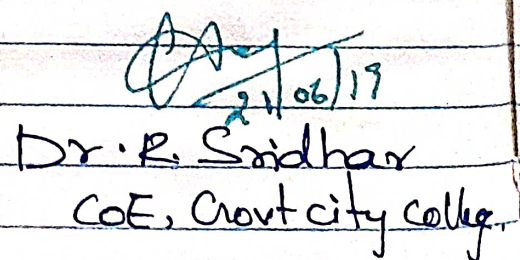 21/06/19
Dr. R. Sridhar
COE, Govt city College.